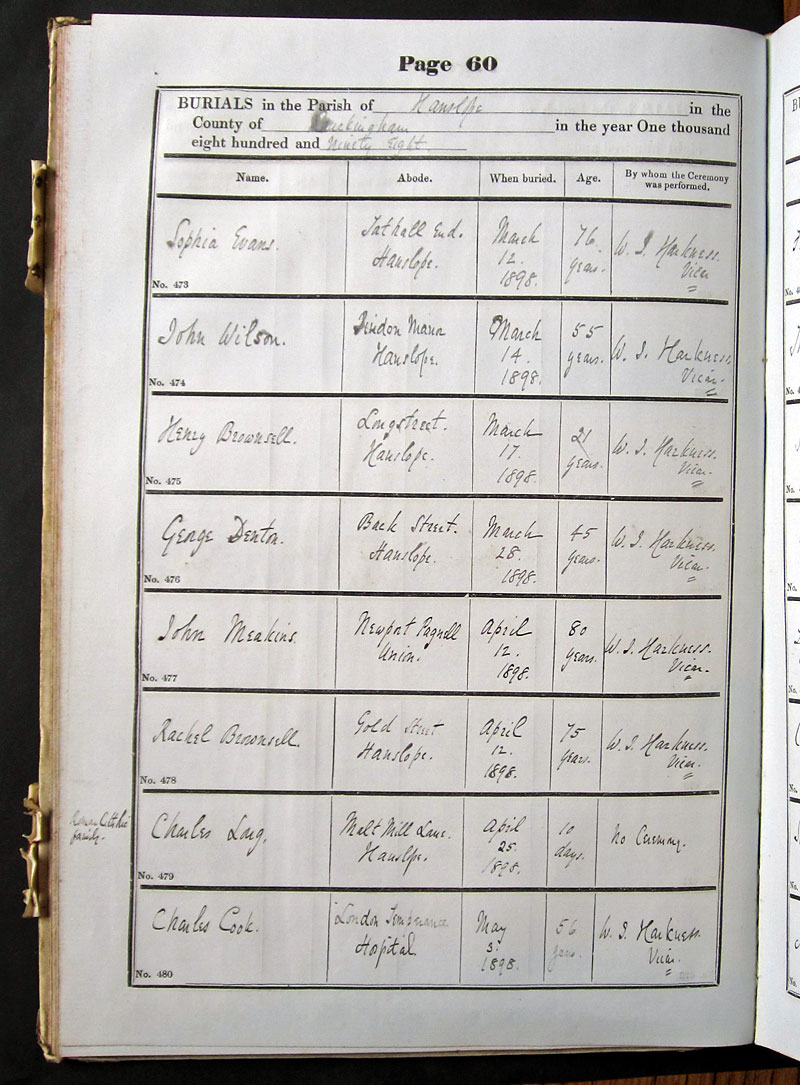 Page 60
BURIALS in the Parish of Hanslope in the
County of Buckingham in the year One thousand
eight hundred and Ninety Eight
Name. Abode. When buried. Age. By whom the Ceremony
was performed.
Sophia Evans. Tathall End. March 76 W. J. Harkness.
Hanslope. 12. years. Vicar
1898.
No. 473
John Wilson. Manor March 55 W. J. Harkness.
Hanslope. 14. years. Vicar.
1898.
No. 474
Henry Brownsell. Longstreet. March 21 W. J. Harkness.
Hanslope. 17. years. Vicar.
1898.
No. 475
George Denton. Back Street. March 45 W. J. Harkness.
Hanslope. 28. years. Vicar.
1898.
No. 476
John Meakins. Newport Pagnell April 80 W. J. Harkness.
Union. 12. years. Vicar.
1898.
No. 477
Rachel Brownsell. Gold Street April 75 W. J. Harkness.
Hanslope. 12. years. Vicar.
1898.
No. 478
Roman Catholic
family.
Charles Long. Malt Mill Lane. April 10 No Ceremony.
Hanslope. 25. days.
1898.
No. 479
Charles Cook. London Temperance May 56 W. J. Harkness.
Hospital. 3. years. Vicar.
1898.
No. 480